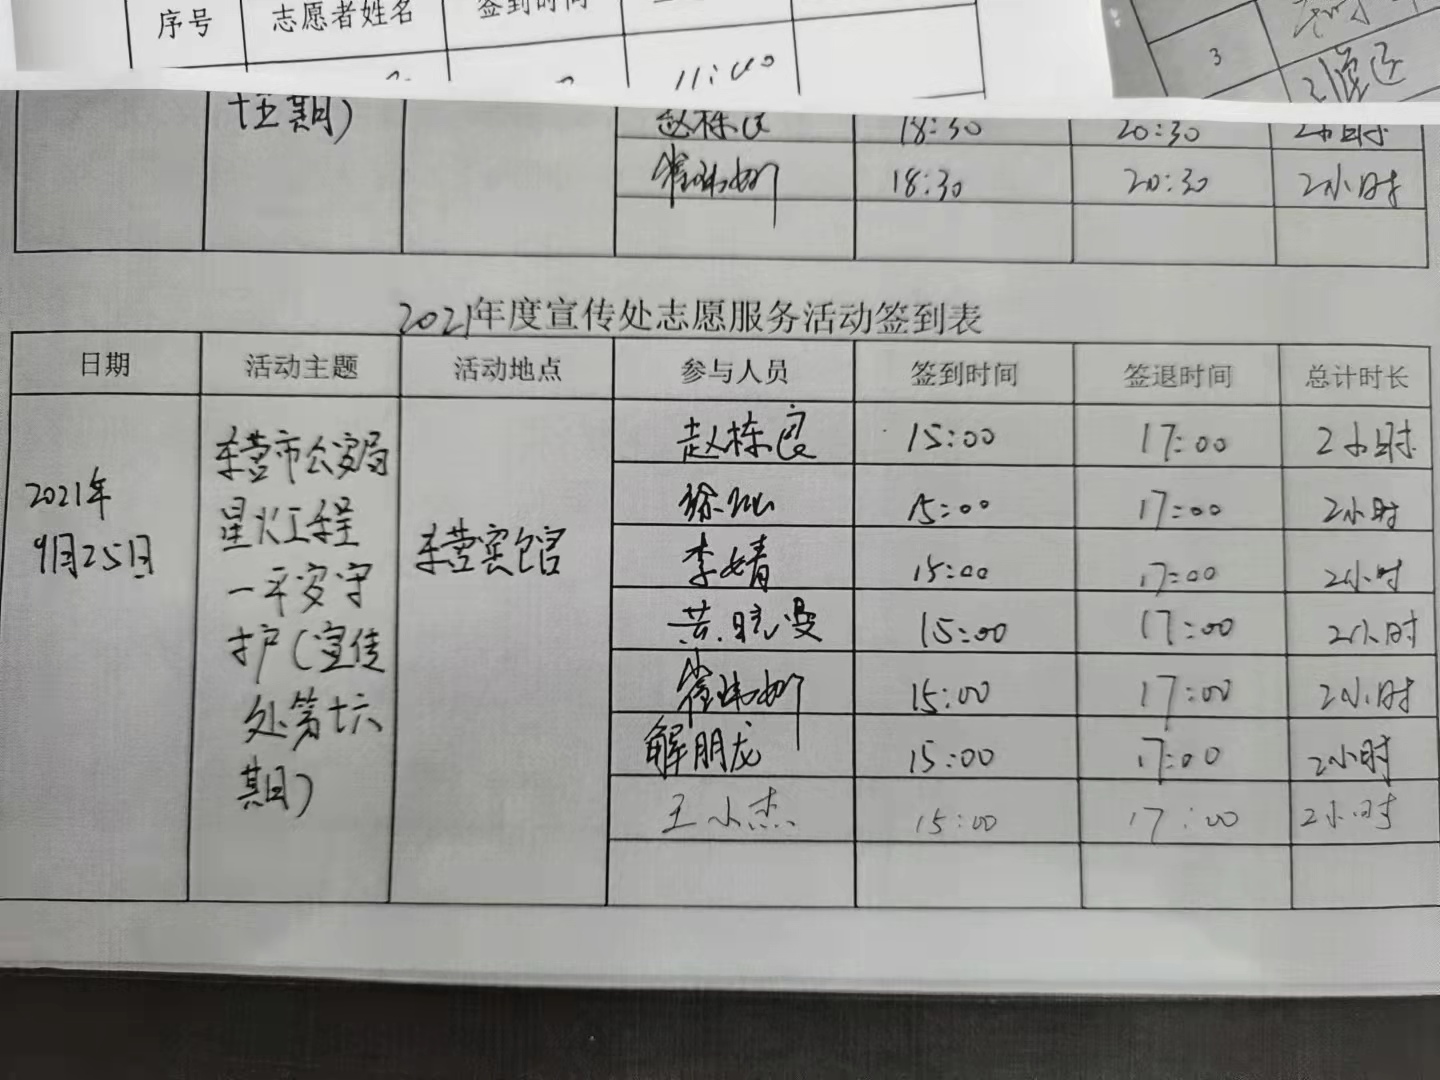 序号 志愿者姓名 签到时间
11:40
3
十五期）
赵栋良 18:30 20:30 2小时
崔玮娜 18:30 20:30 2小时
2021年度宣传处志愿服务活动签到表
日期 活动主题 活动地点 参与人员 签到时间 签退时间 总计时长
2021年
9月25日
东营市公安局
星火工程
一平安守
护（宣传
处第十六
期）
东营宾馆
赵栋良 15:00 17:00 2小时
15:00 17:00 2小时
李婧 15:00 17:00 2小时
黄晓漫 15:00 17:00 2小时
崔玮娜 15:00 17:00 2小时
解朋龙 15:00 17:00 2小时
王小杰 15:00 17:00 2小时